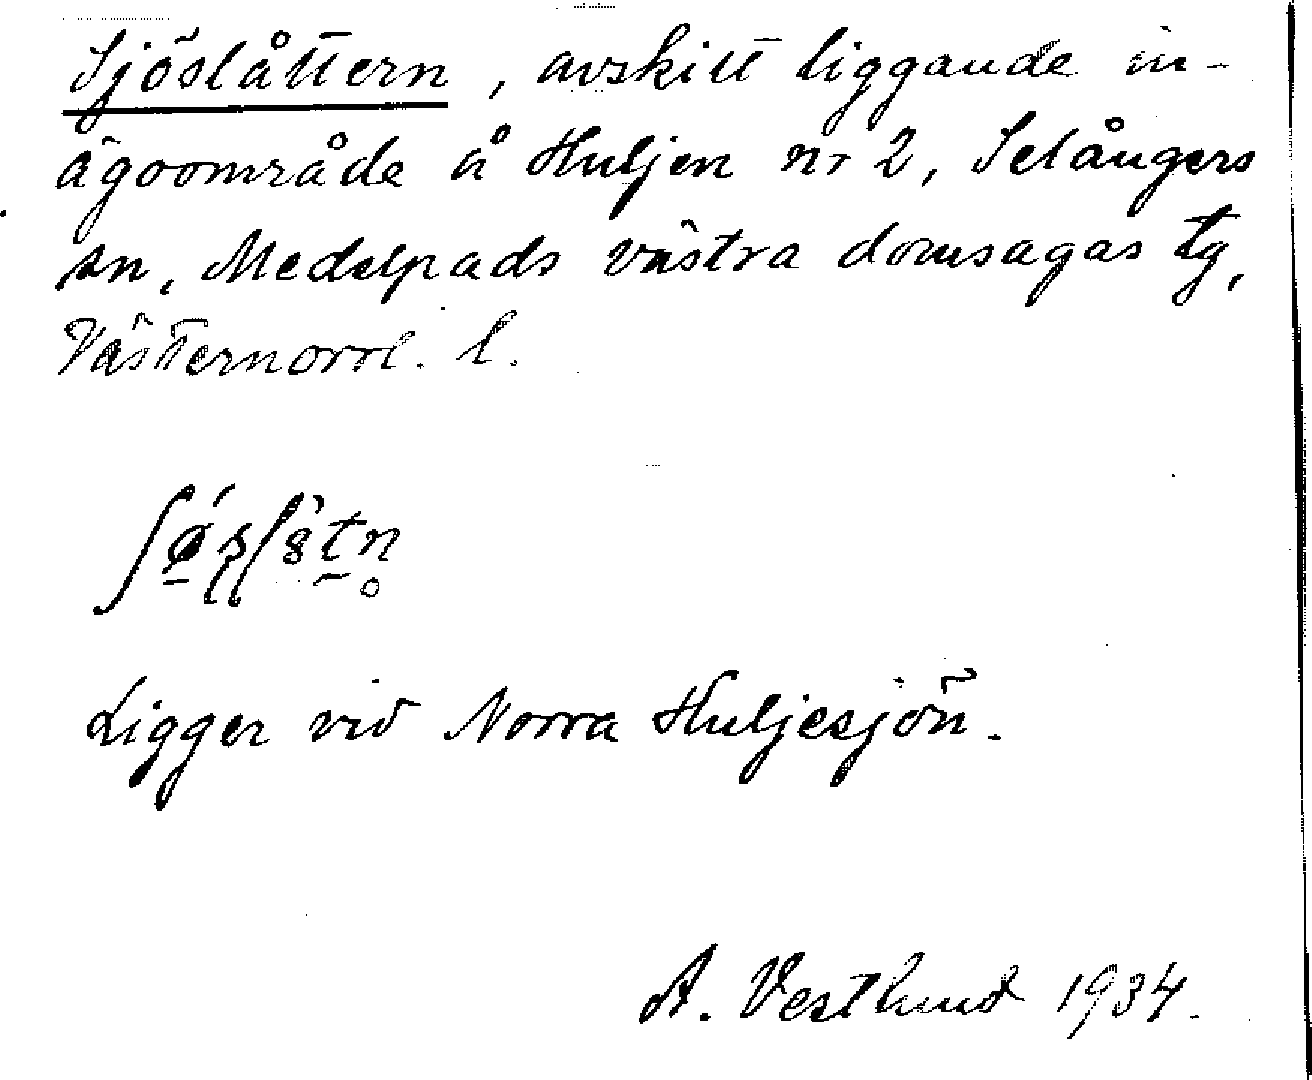 Sjöslåttern, avskilt liggande in-
ägoområde å Huljen nr 2, Selångers
sn, Medelpads västra domsagas tg,
Västernorrl. l.
Ligger vid Norra Huljesjön.
A. Vestlund 1934.